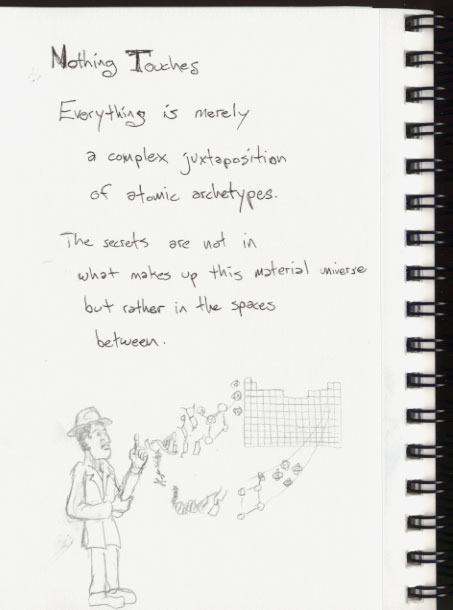 Nothing Touches
Everything is merely
a complex juxtaposition
of atomic archetypes.
The secrets are not in
what makes up this material universe
but rather in the spaces
between.